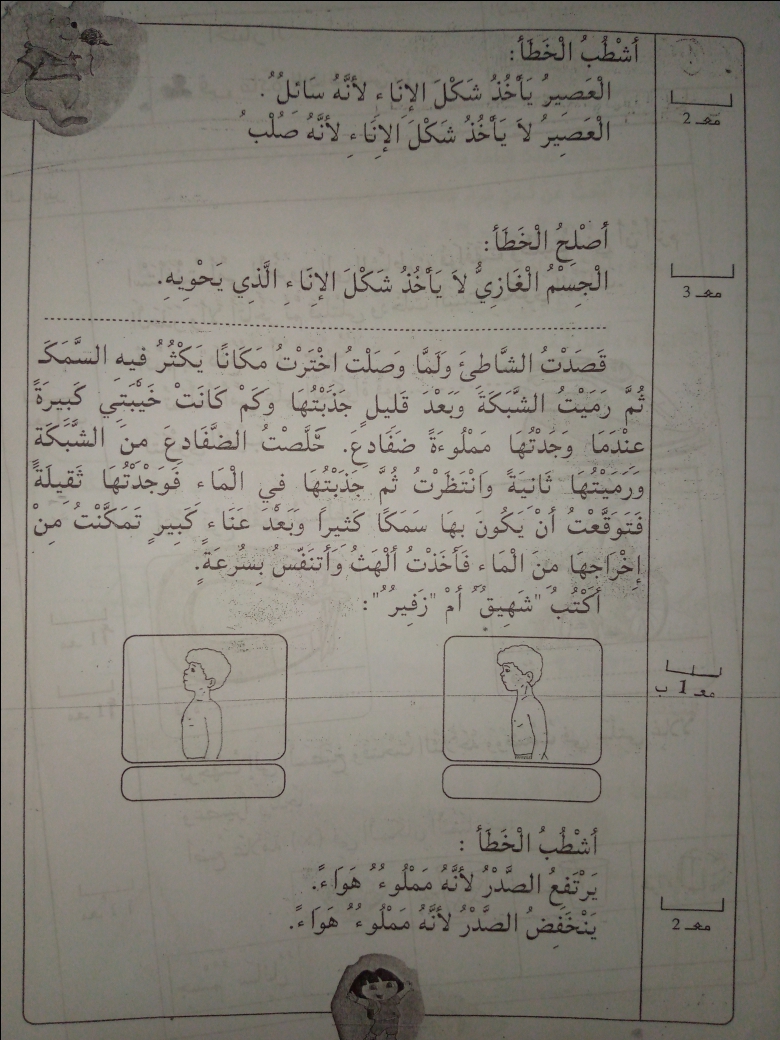 أَشْطُبُ الْخَطَأَ:
الْعَصِيرُ يَأْخُذُ شَكْلَ الإِنَاءِ لأَنَّهُ سَائِلٌ.
معـ 2
الْعَصِيرُ لاَ يَأْخُذُ شَكْلَ الإِنَاءِ لأَنَّهُ صَلْبٌ
أُصْلِحُ الْخَطَأَ:
الْجِسْمُ الْغَازِيُّ لاَ يَأْخُذُ شَكْلَ الإِنَاءِ الَّذِي يَحْوِيهِ.
معـ 3
قَصَدْتُ الشَّاطِئَ وَلَمَّا وَصَلْتُ اخْتَرْتُ مَكَانًا يَكْثُرُ فِيهِ السَّمَكُ
ثُمَّ رَمَيْتُ الشَّبَكَةَ وَبَعْدَ قَلِيلٍ جَذَبْتُهَا وَكَمْ كَانَتْ خَيْبَتِي كَبِيرَةً
عِنْدَمَا وَجَدْتُهَا مَمْلُوءَةً ضَفَادِعَ. خَلَّصْتُ الضَّفَادِعَ مِنَ الشَّبَكَةِ
وَرَمَيْتُهَا ثَانِيَةً وَانْتَظَرْتُ ثُمَّ جَذَبْتُهَا فِي الْمَاءِ فَوَجَدْتُهَا ثَقِيلَةً
فَتَوَقَّعْتُ أَنْ يَكُونَ بِهَا سَمَكًا كَثِيرًا وَبَعْدَ عَنَاءٍ كَبِيرٍ تَمَكَّنْتُ مِنْ
إِخْرَاجِهَا مِنَ الْمَاءِ فَأَخَذْتُ أَلْهَثُ وَأَتَنَفَّسُ بِسُرْعَةٍ.
أَكْتُبُ "شَهِيقٌ" أَمْ "زَفِيرٌ":
معـ 1 ب
أَشْطُبُ الْخَطَأَ :
يَرْتَفِعُ الصَّدْرُ لأَنَّهُ مَمْلُوءٌ هَوَاءً.
يَنْخَفِضُ الصَّدْرُ لأَنَّهُ مَمْلُوءٌ هَوَاءً.
معـ 2